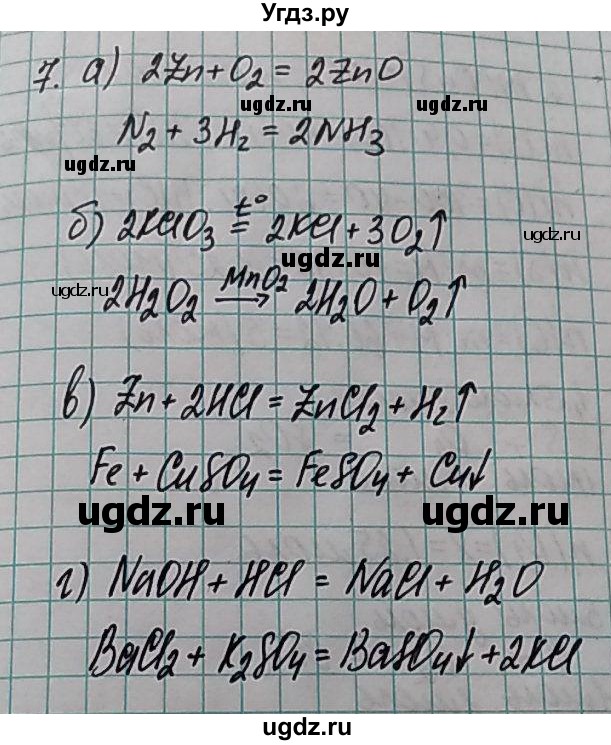 Угдз.ру
7. а) 2Zn + O₂ = 2ZnO
ugdz.ru ugdz.ru
N₂ + 3H₂ = 2NH₃
ugdz.ru
б) 2KClO₃ t°= 2KCl + 3O₂↑
ugdz.ru ugdz.ru
ugdz.ru
2H₂O₂ MnO₂→ 2H₂O + O₂↑
ugdz.ru
в) Zn + 2HCl = ZnCl₂ + H₂↑
Fe + CuSO₄ = FeSO₄ + Cu↓
ugdz.ru ugdz.ru
г) NaOH + HCl = NaCl + H₂O
BaCl₂ + K₂SO₄ = BaSO₄↓ + 2KCl
ugdz.ru ugdz.ru
ugdz.ru